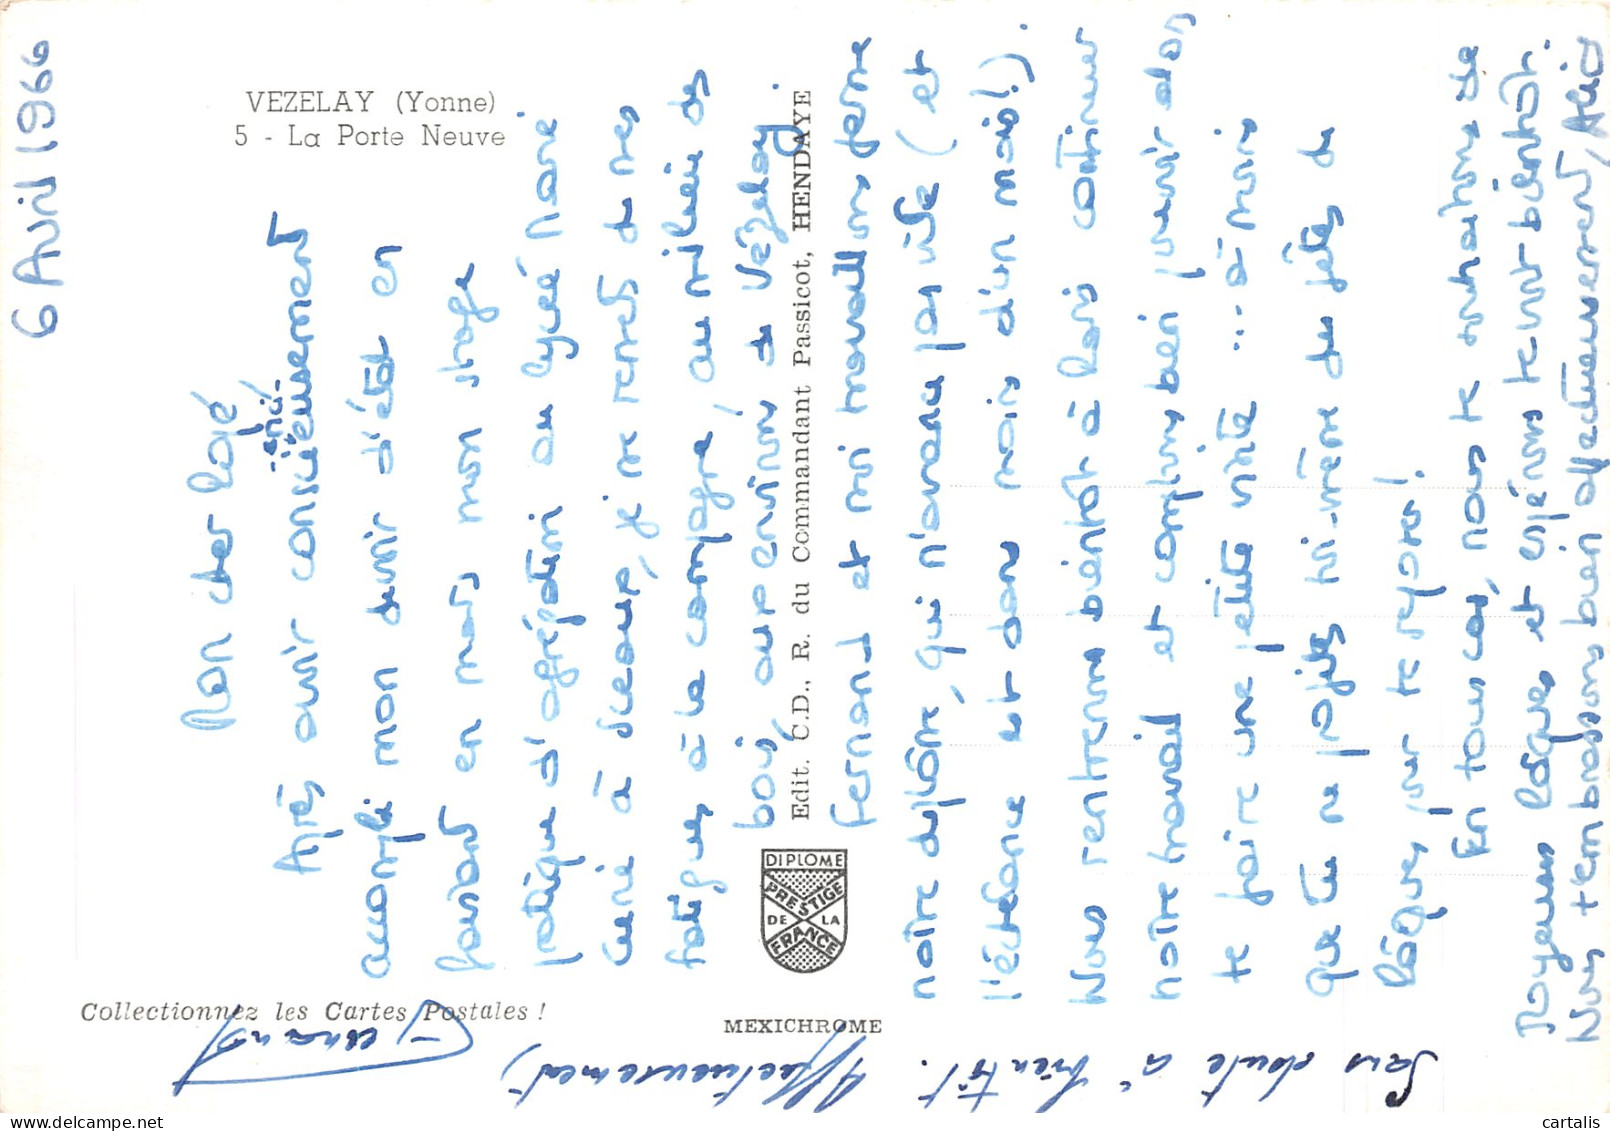 6 Avril 1966
VEZELAY (Yonne)
5 - La Porte Neuve
Mon cher
Après avoir consciencieusement
accompli mon devoir d'état en
faisant en mars mon stage
pratique d'agrégation au lycée Marie
Curie à Sceaux, je me remets de mes
fatigues à la campagne, au milieu des
bois, aux environs de Vézelay.
Fernand et moi travaillons ferme
notre diplôme, qui n'avance pas vite (et
l'échéance est dans moins d'un mois!).
Nous rentrerons bientôt à Paris continuer
notre travail et comptons bien pouvoir alors
te faire une petite visite ... à moins
que tu ne profites toi-même des fêtes de
Pâques pour te reposer!
En tous cas, nous te souhaitons de
Joyeuses Pâques et espérons te voir bientôt.
Nous t'embrassons bien affectueusement,
Sans doute à bientôt.
Affectueusement,
Fernand
Edit. C.D., R. du Commandant Passicot, HENDAYE
DIPLOME
PRESTIGE
DE LA
FRANCE
Collectionnez les Cartes Postales !
MEXICHROME
cartalis